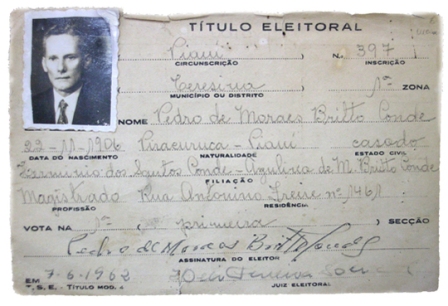 TÍTULO ELEITORAL
Piaui N. 397
CIRCUNSCRIÇÃO INSCRIÇÃO
Teresina 1ª ZONA
MUNICIPIO OU DISTRITO
NOME Pedro de Moraes Britto Conde
22-11-1906 Piracuruca - Piaui casado
DATA DO NASCIMENTO NATURALIDADE ESTADO CIVIL
dos Santos Conde - M. Britto Conde
FILIAÇÃO
Magistrado Rua Antonino Freire nº 1461
PROFISSÃO RESIDÊNCIA
VOTA NA 1ª primeira SECÇÃO
Pedro de Moraes Britto Conde
ASSINATURA DO ELEITOR
EM 7.6.1962
T.S.E. - TÍTULO MOD. JUIZ ELEITORAL